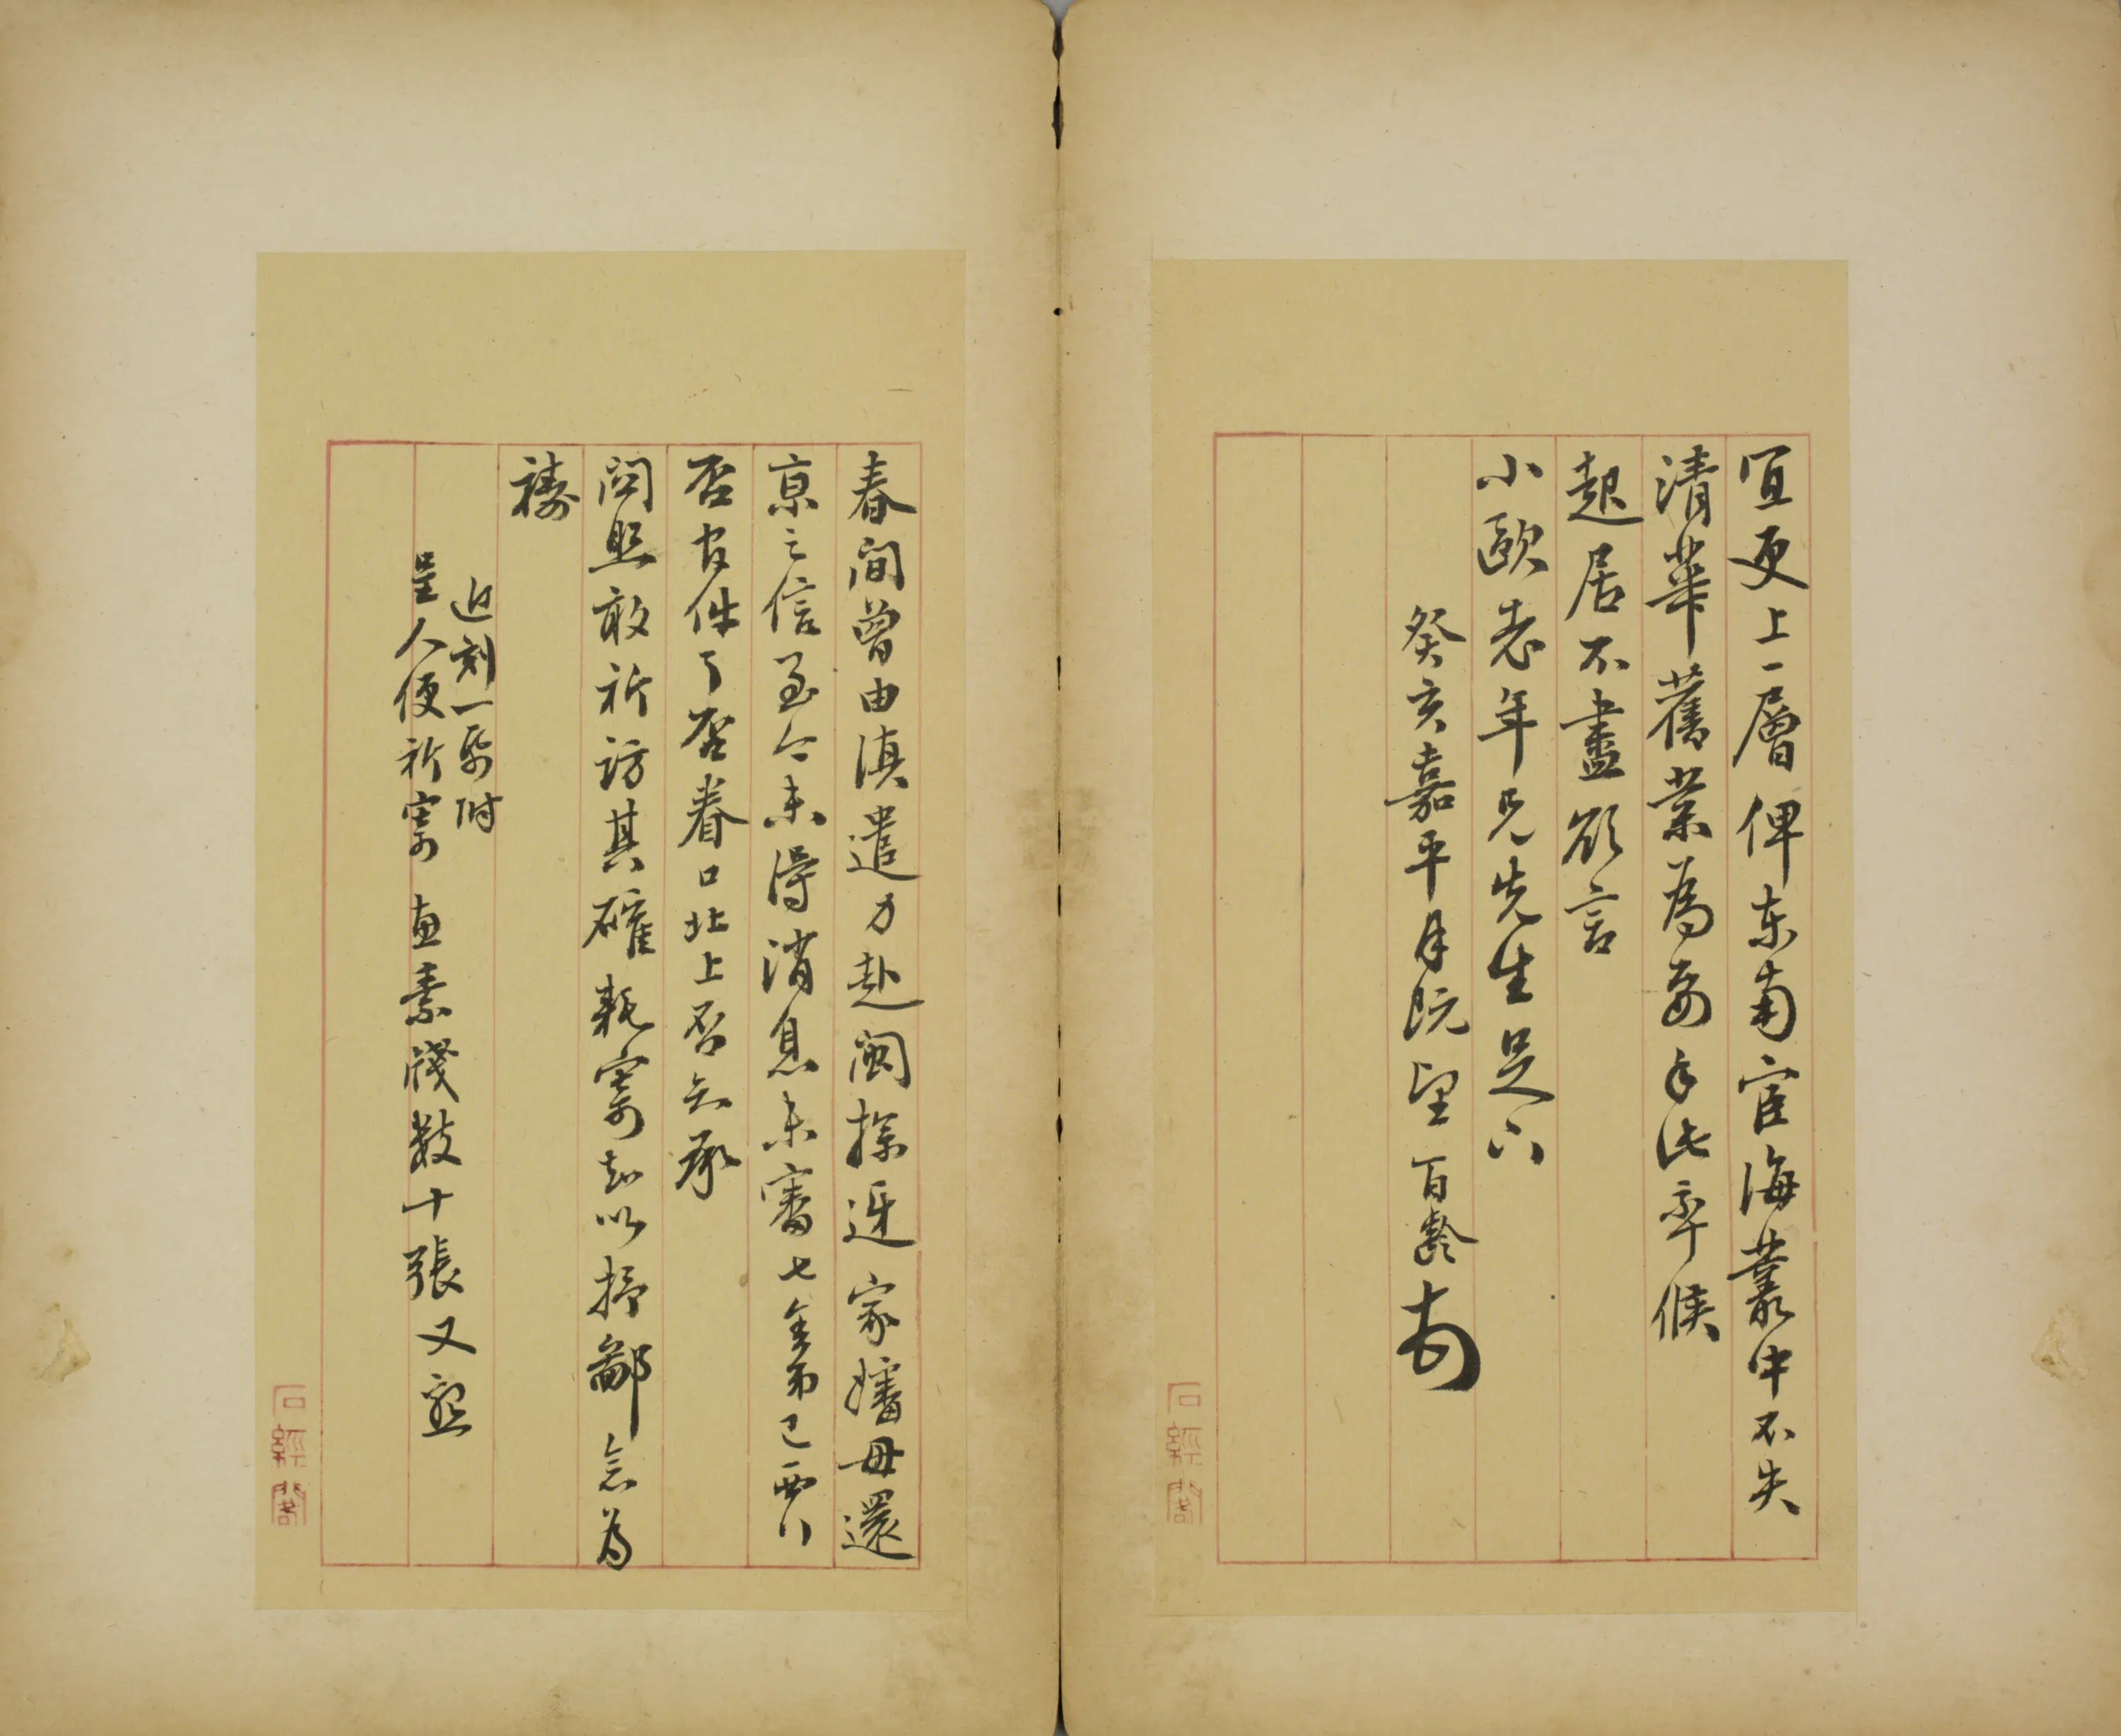 宜更上一層俾东南宦海叢中不失
清華舊業為妥手此奉候
起居不盡欲言
小歐老年兄先生足下
癸亥嘉平月既望 百齡
石經閣
春間曾由滇遣力赴閩探迓家嬸母還
京之信至今未得消息未審七舍弟已
否官件了否眷口北上否知承
関照敢祈訪其確耗寄知以抒鄙念為
禱
近刻一
附
呈人便祈寄 素牋数十張又
石經閣